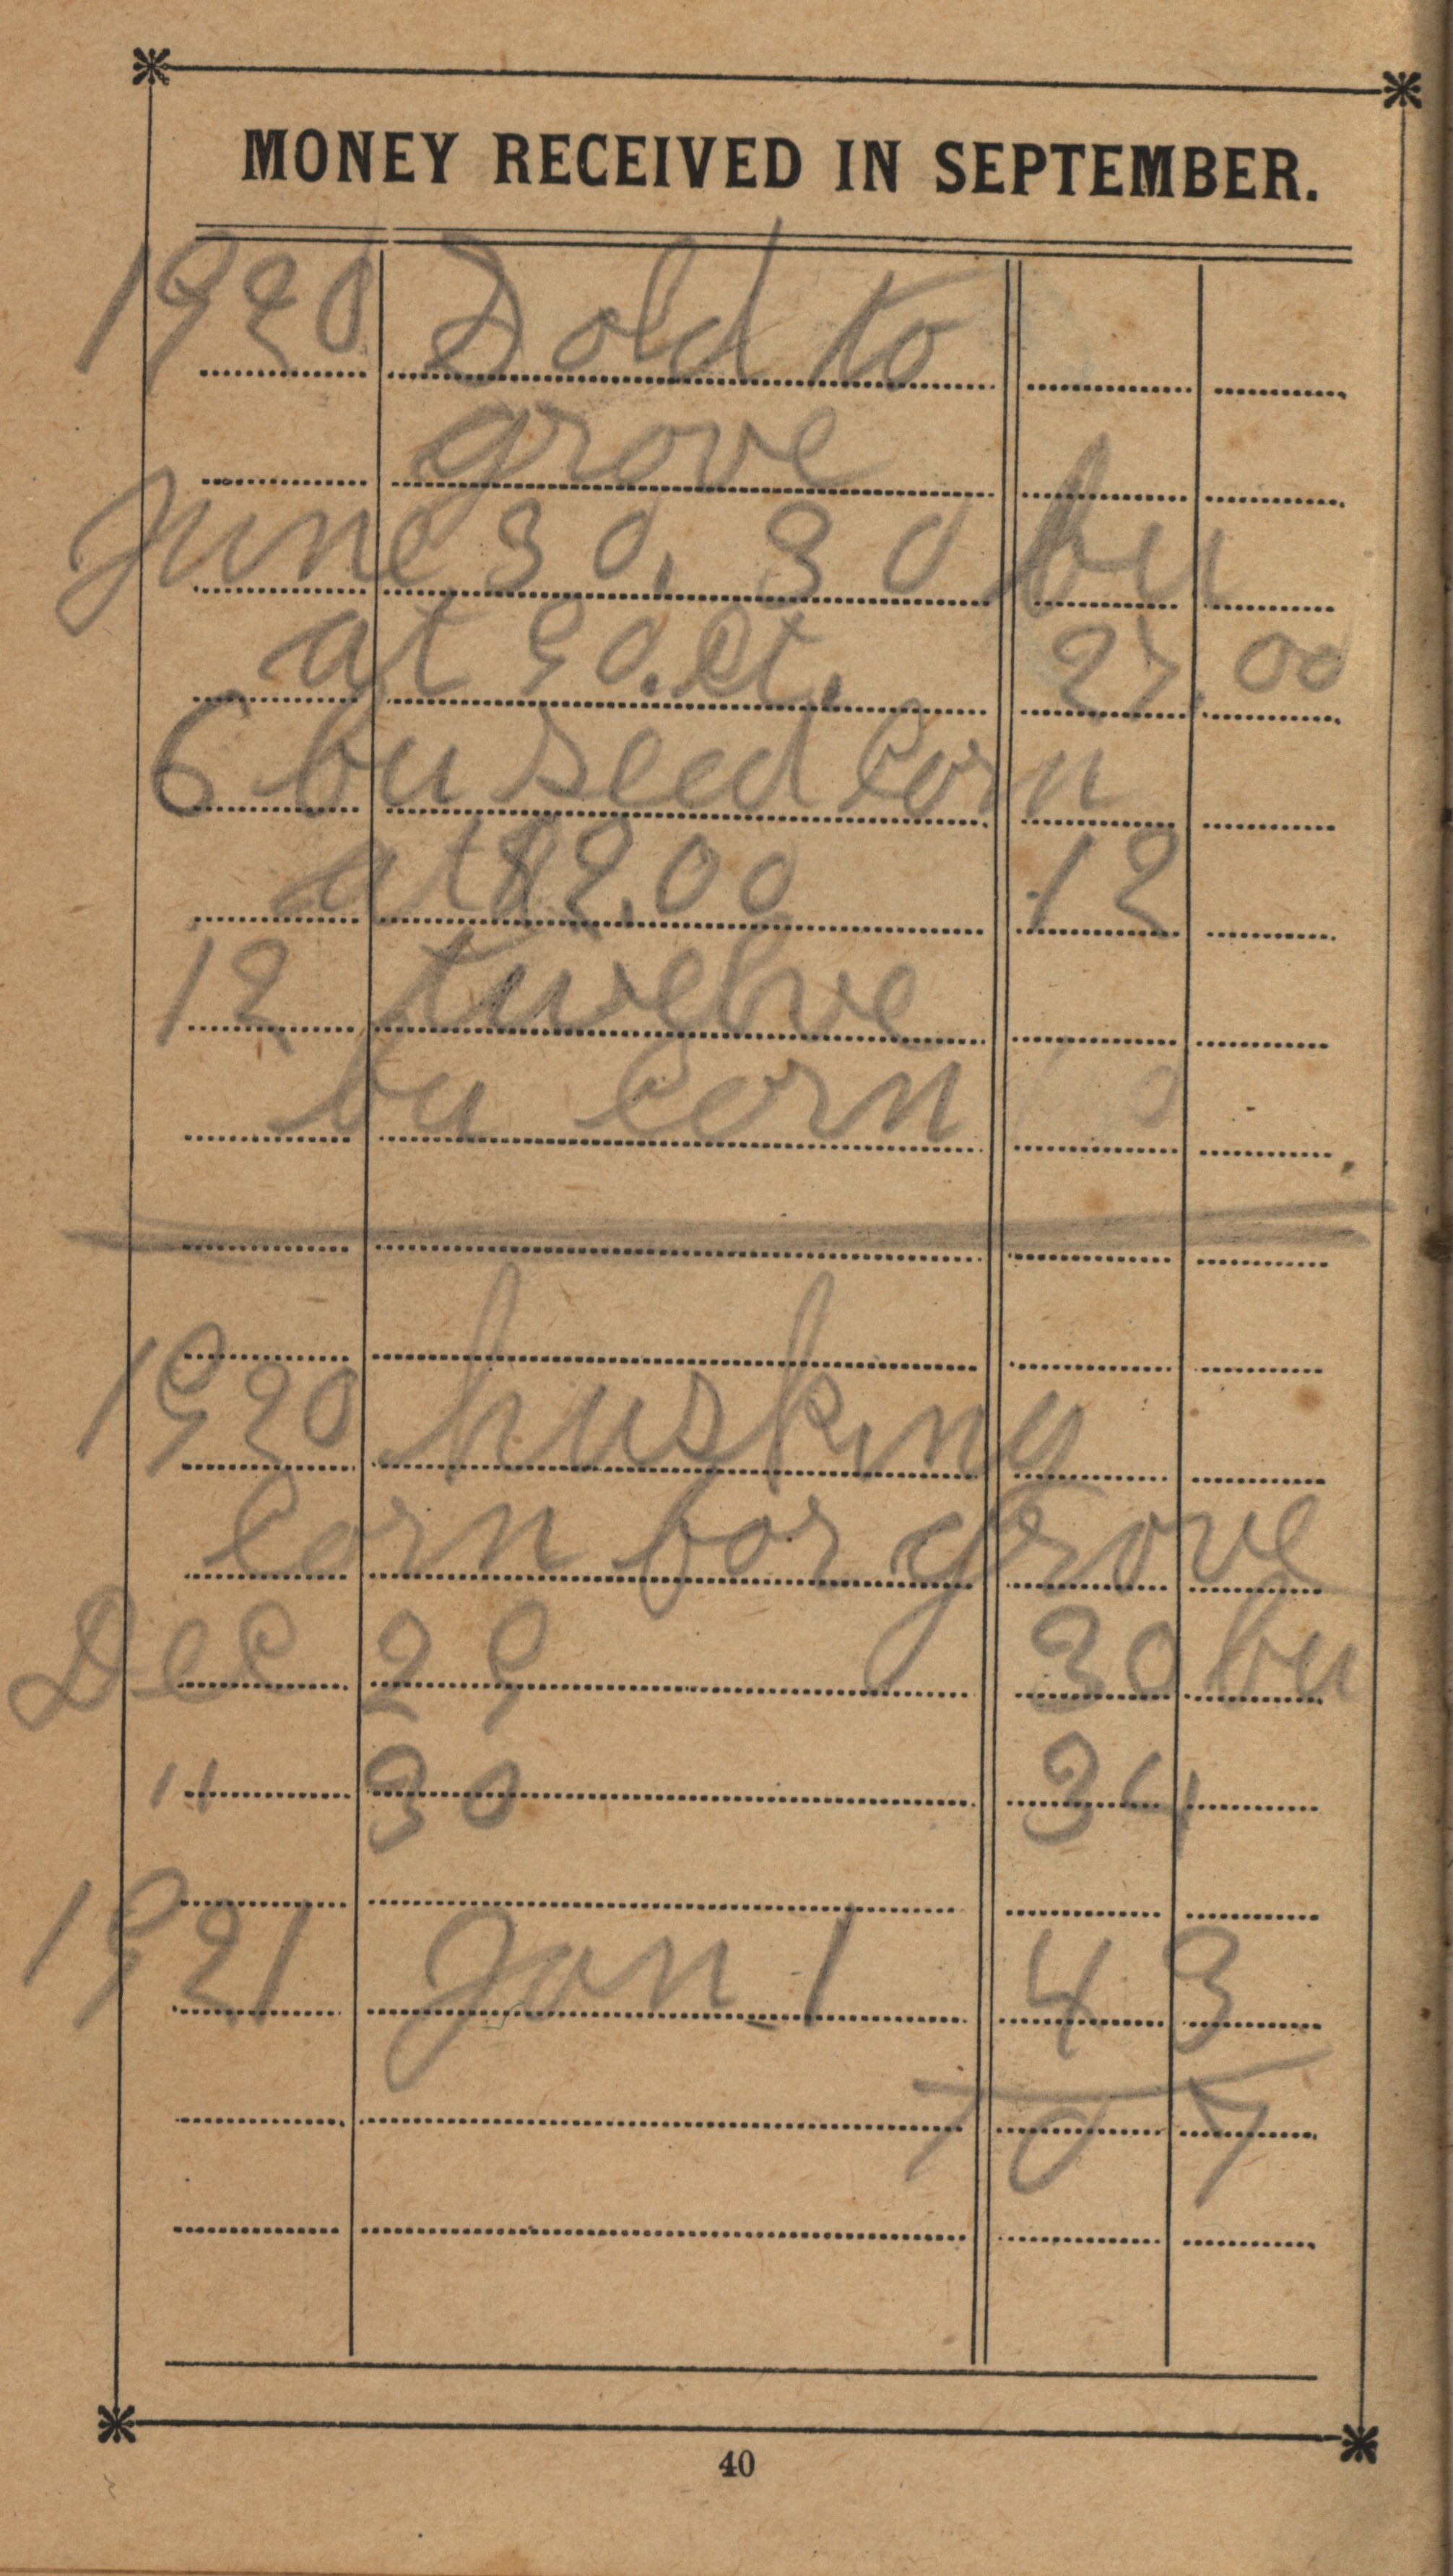 MONEY RECEIVED IN SEPTEMBER.
1920 Sold to
grove
June 30, 30 bu
at 90.ct. 27.00
6 bu seed Corn
at $2.00 12
12 twelve
bu Corn
1920 husking
Corn for grove
Dec 29 30 bu
" 30 34
1921 Jan 1 43
107
40